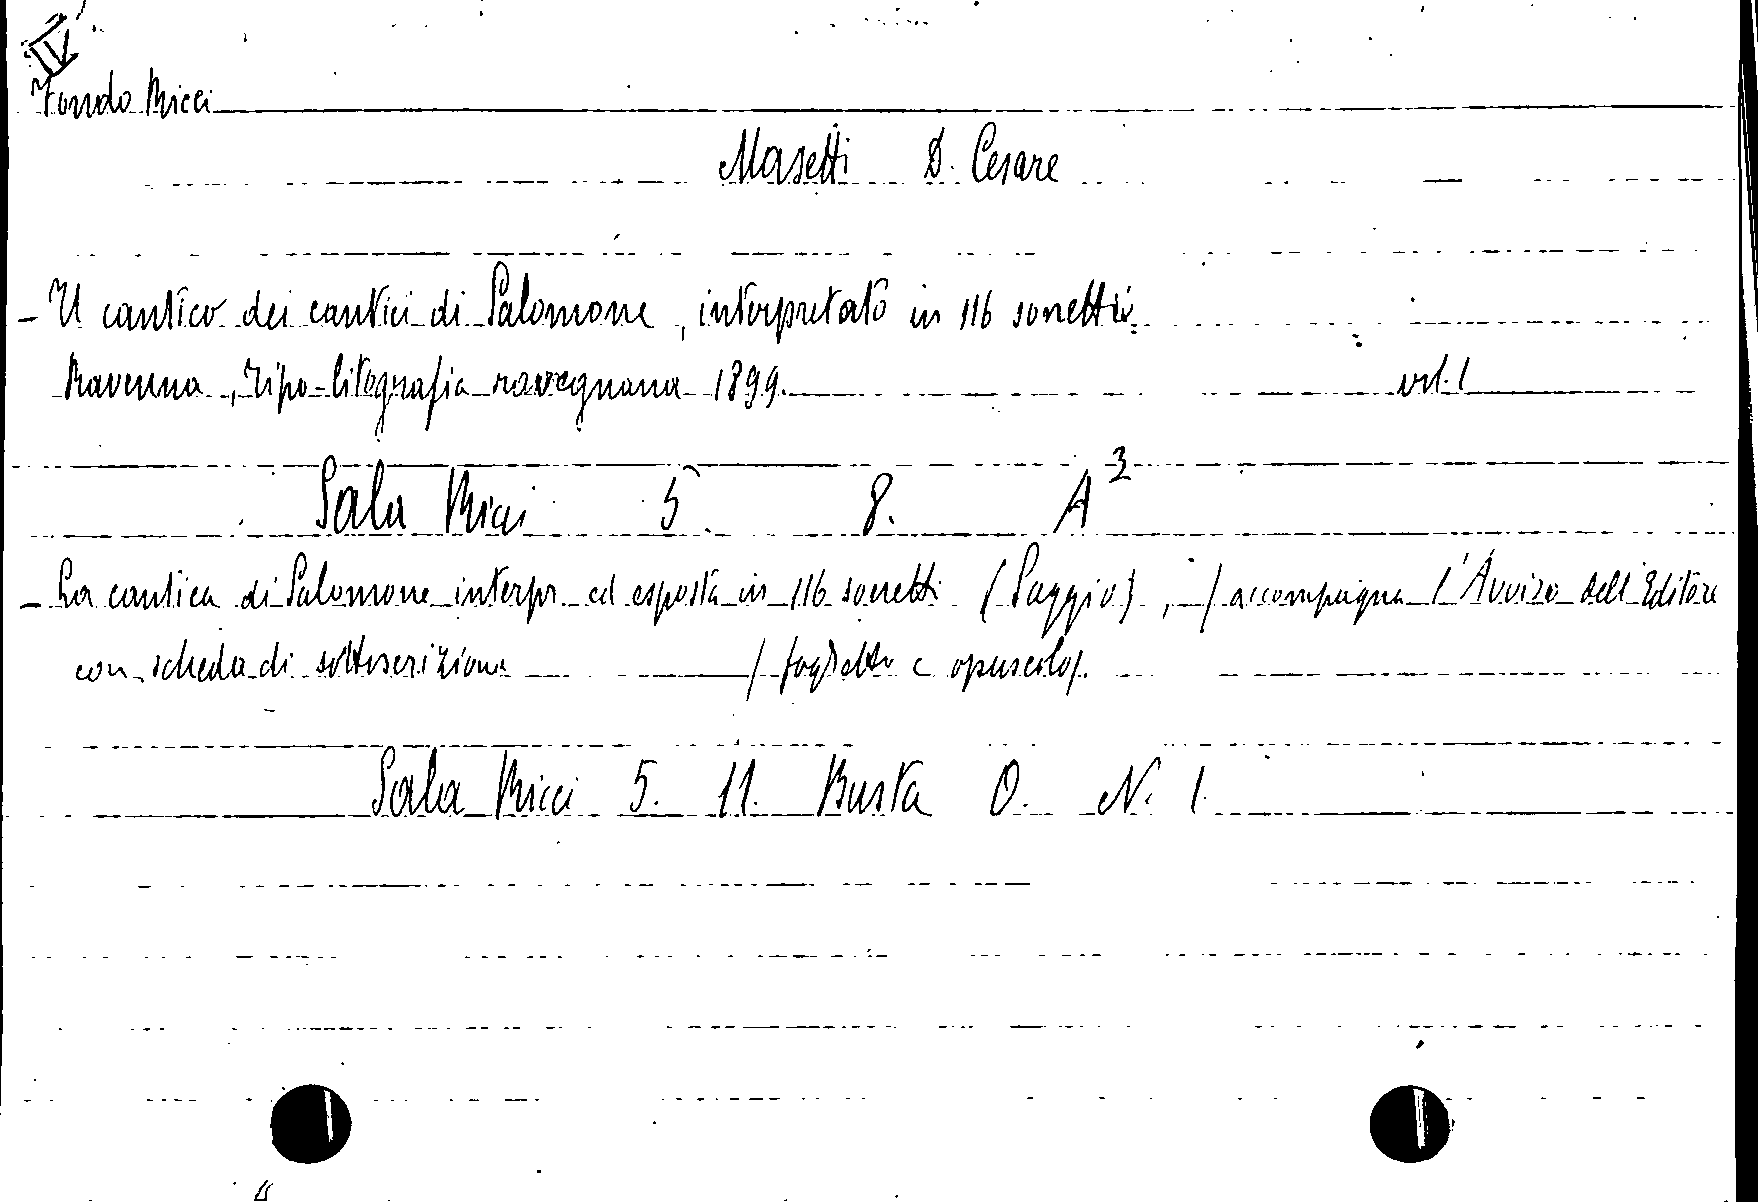 IV
Fondo Ricci
Masetti D. Cesare
- Il cantico dei cantici di Salomone, interpretato in 116 sonetti.
Ravenna, Tipo-litografia ravegnana 1899. vol. 1
Sala Ricci 5. 8. A³
- La cantica di Salomone interpr. ed esposta in 116 sonetti (Saggio), / accompagna l'Avviso dell'Editore
con scheda di sottoscrizione / foglietto e opuscolo/.
Sala Ricci 5. 11. Busta O. N. 1.